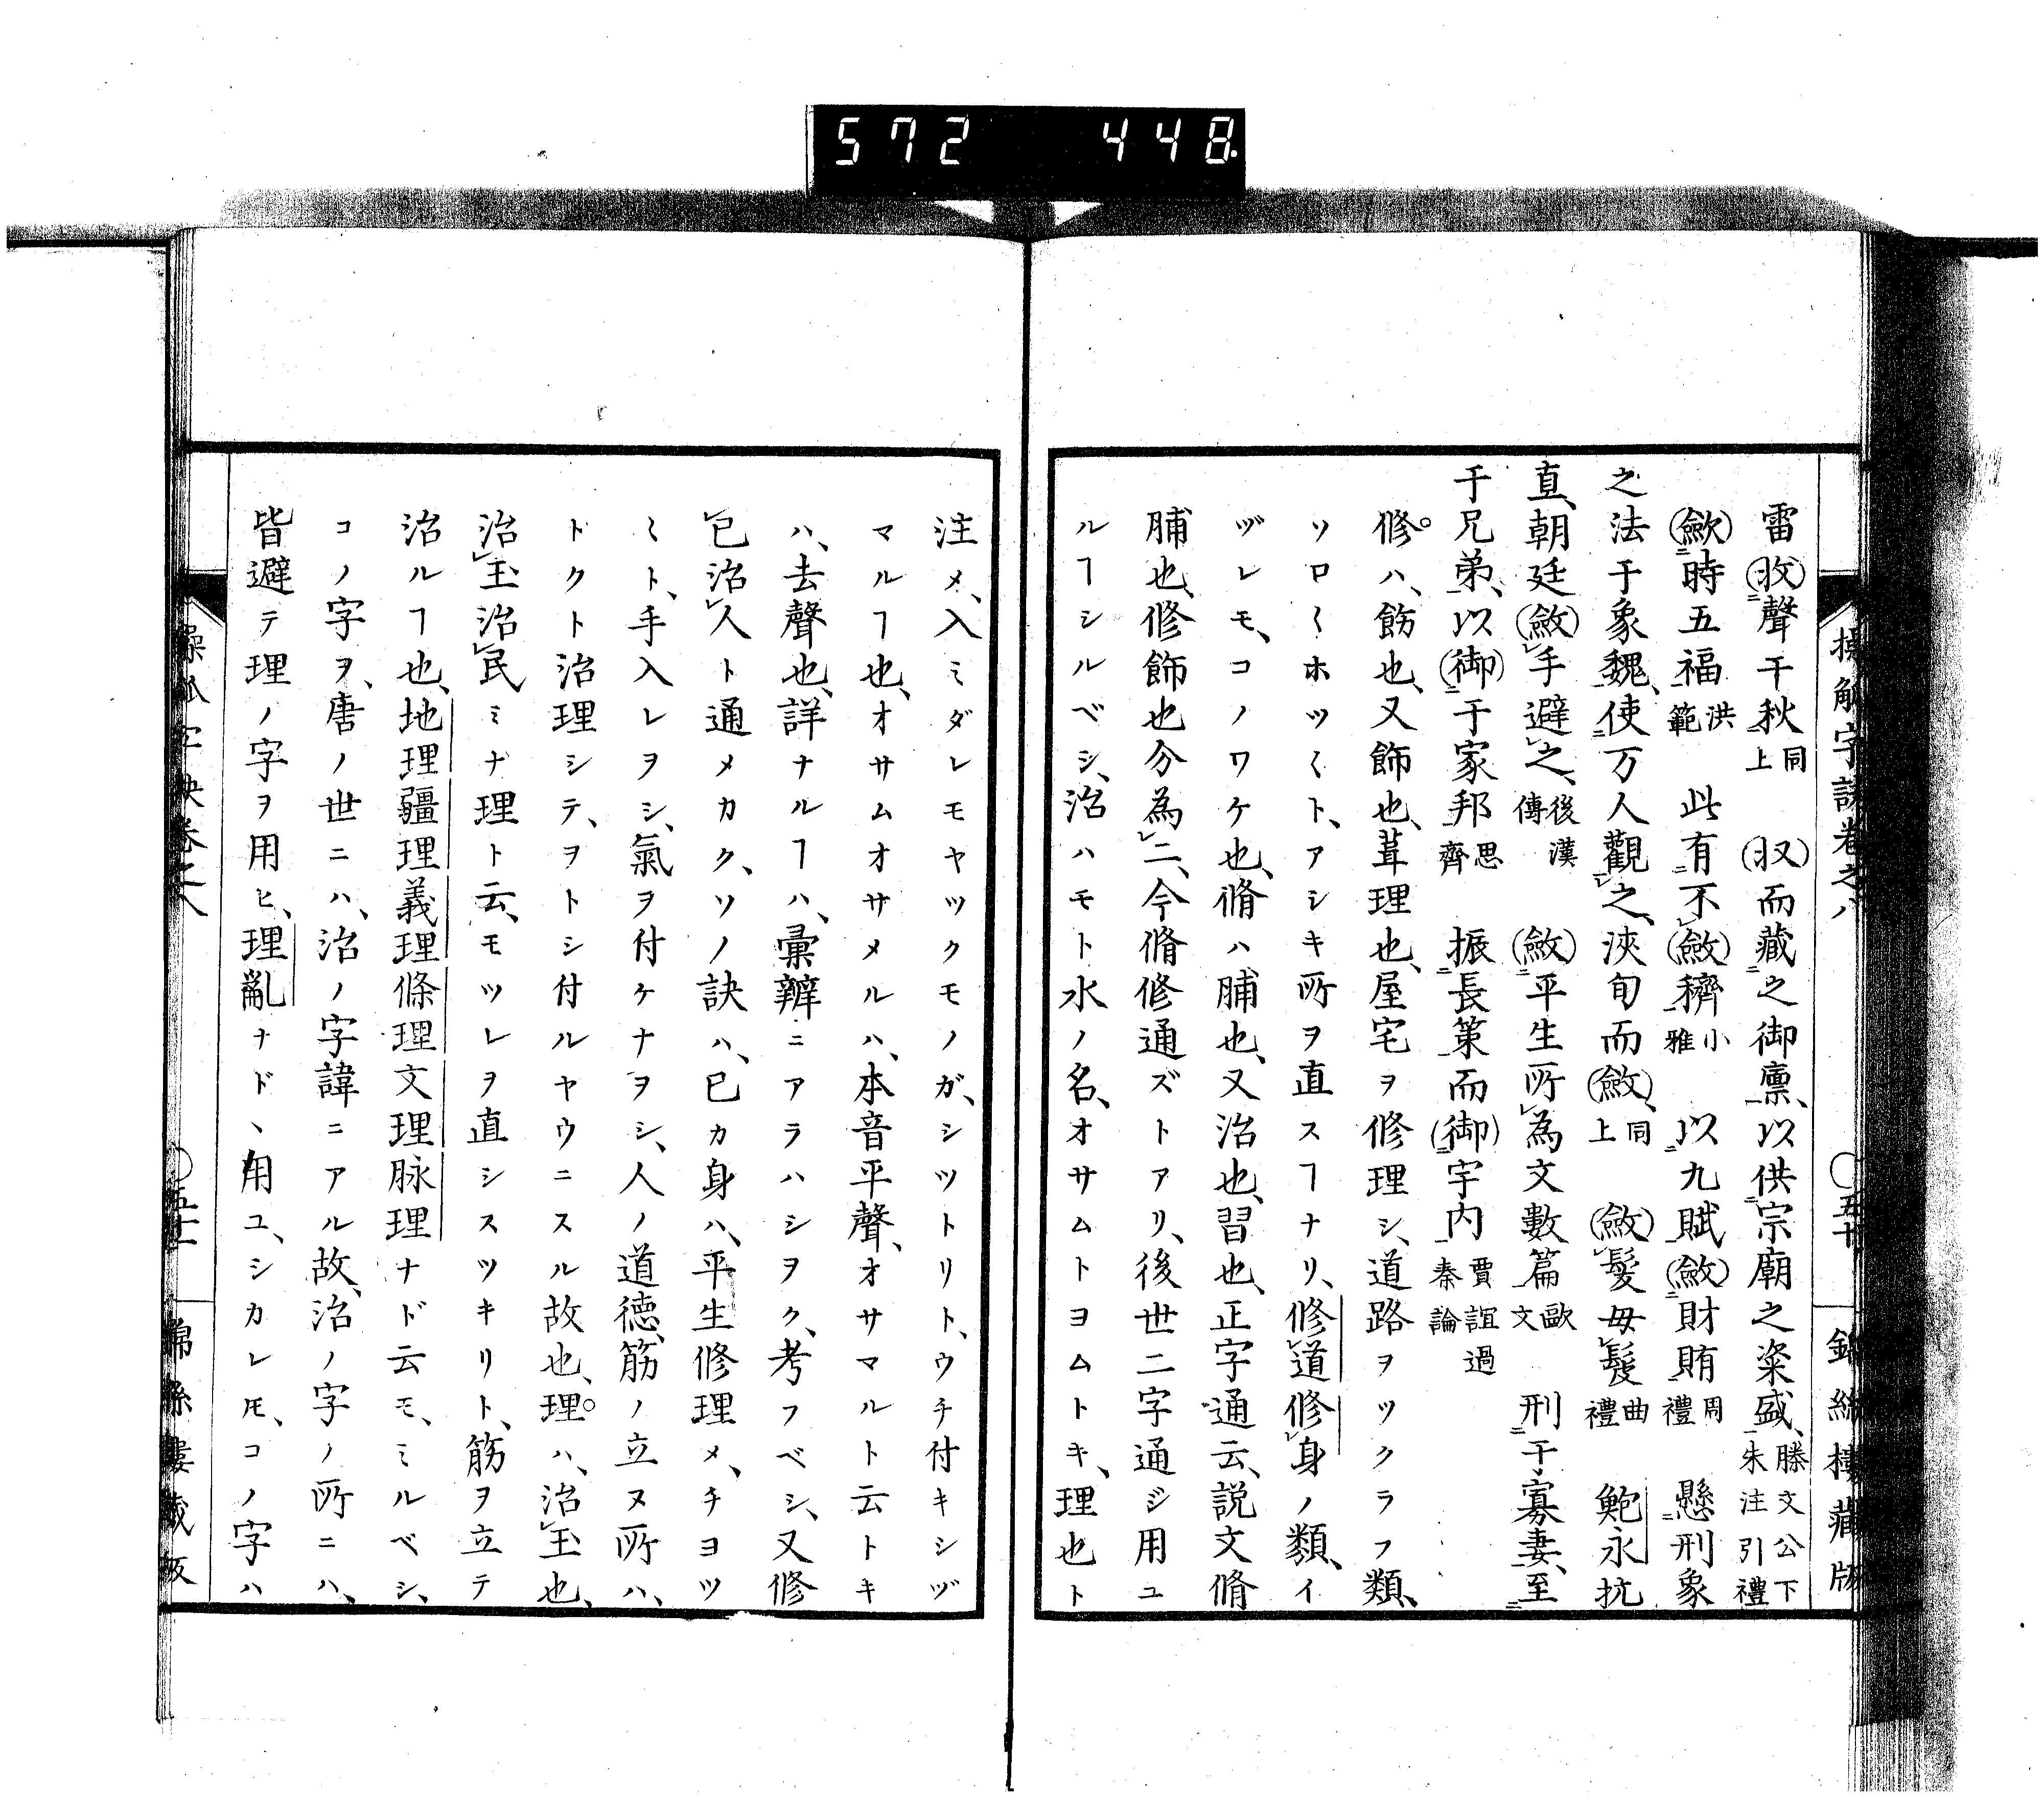 572 448.
操觚字訣卷之八 ○五十 錦絲樓藏版
雷㊀收聲于秋同上 收而藏之御廩、以供宗廟之粢盛、滕文公下朱注引禮
斂時五福洪範 此有不斂穧小雅 以九賦斂財賄周禮 懸刑象
之法于象魏、使万人觀之、浹旬而斂、同上 斂髮毋髢曲禮 鮑永抗
直、朝廷斂手避之、後漢傳 斂平生所為文數篇歐文 刑于寡妻、至
于兄弟、以御于家邦思齊 振長策而御宇内賈誼過秦論
修。ハ、飭也、又飾也、葺理也、屋宅ヲ修理シ、道路ヲツクラフ類、
ソロ〱ホツ〱ト、アシキ所ヲ直スヿナリ、修道修身ノ類、イ
ヅレモ、コノワケ也、脩ハ脯也、又治也、習也、正字通云、説文脩
脯也、修飾也分為二、今脩修通ズトアリ、後世二字通ジ用ユ
ルヿシルベシ、治ハモト水ノ名、オサムトヨムトキ、理也ト
注メ、入ミダレモヤツクモノガ、シツトリト、ウチ付キシヅ
マルヿ也、オサムオサメルハ、本音平聲、オサマルト云トキ
ハ、去聲也、詳ナルヿハ、彙辨ニアラハシヲク、考フベシ、又修
已治人ト通メカク、ソノ訣ハ、已カ身ハ、平生修理メ、チヨツ
〱ト、手入レヲシ、氣ヲ付ケナヲシ、人ノ道德、筋ノ立ヌ所ハ、
トクト治理シテ、ヲトシ付ルヤウニスル故也、理。ハ、治玉也、
治玉治民ミナ理ト云、モツレヲ直シスツキリト、筋ヲ立テ
治ルヿ也、地理疆理義理條理文理脉理ナド云モ、ミルベシ、
コノ字ヲ、唐ノ世ニハ、治ノ字諱ニアル故、治ノ字ノ所ニハ、
皆避テ理ノ字ヲ用ヒ、理亂ナド、用ユ、シカレ𪜈、コノ字ハ
操觚字訣卷之八 ○五十一 錦絲樓藏版